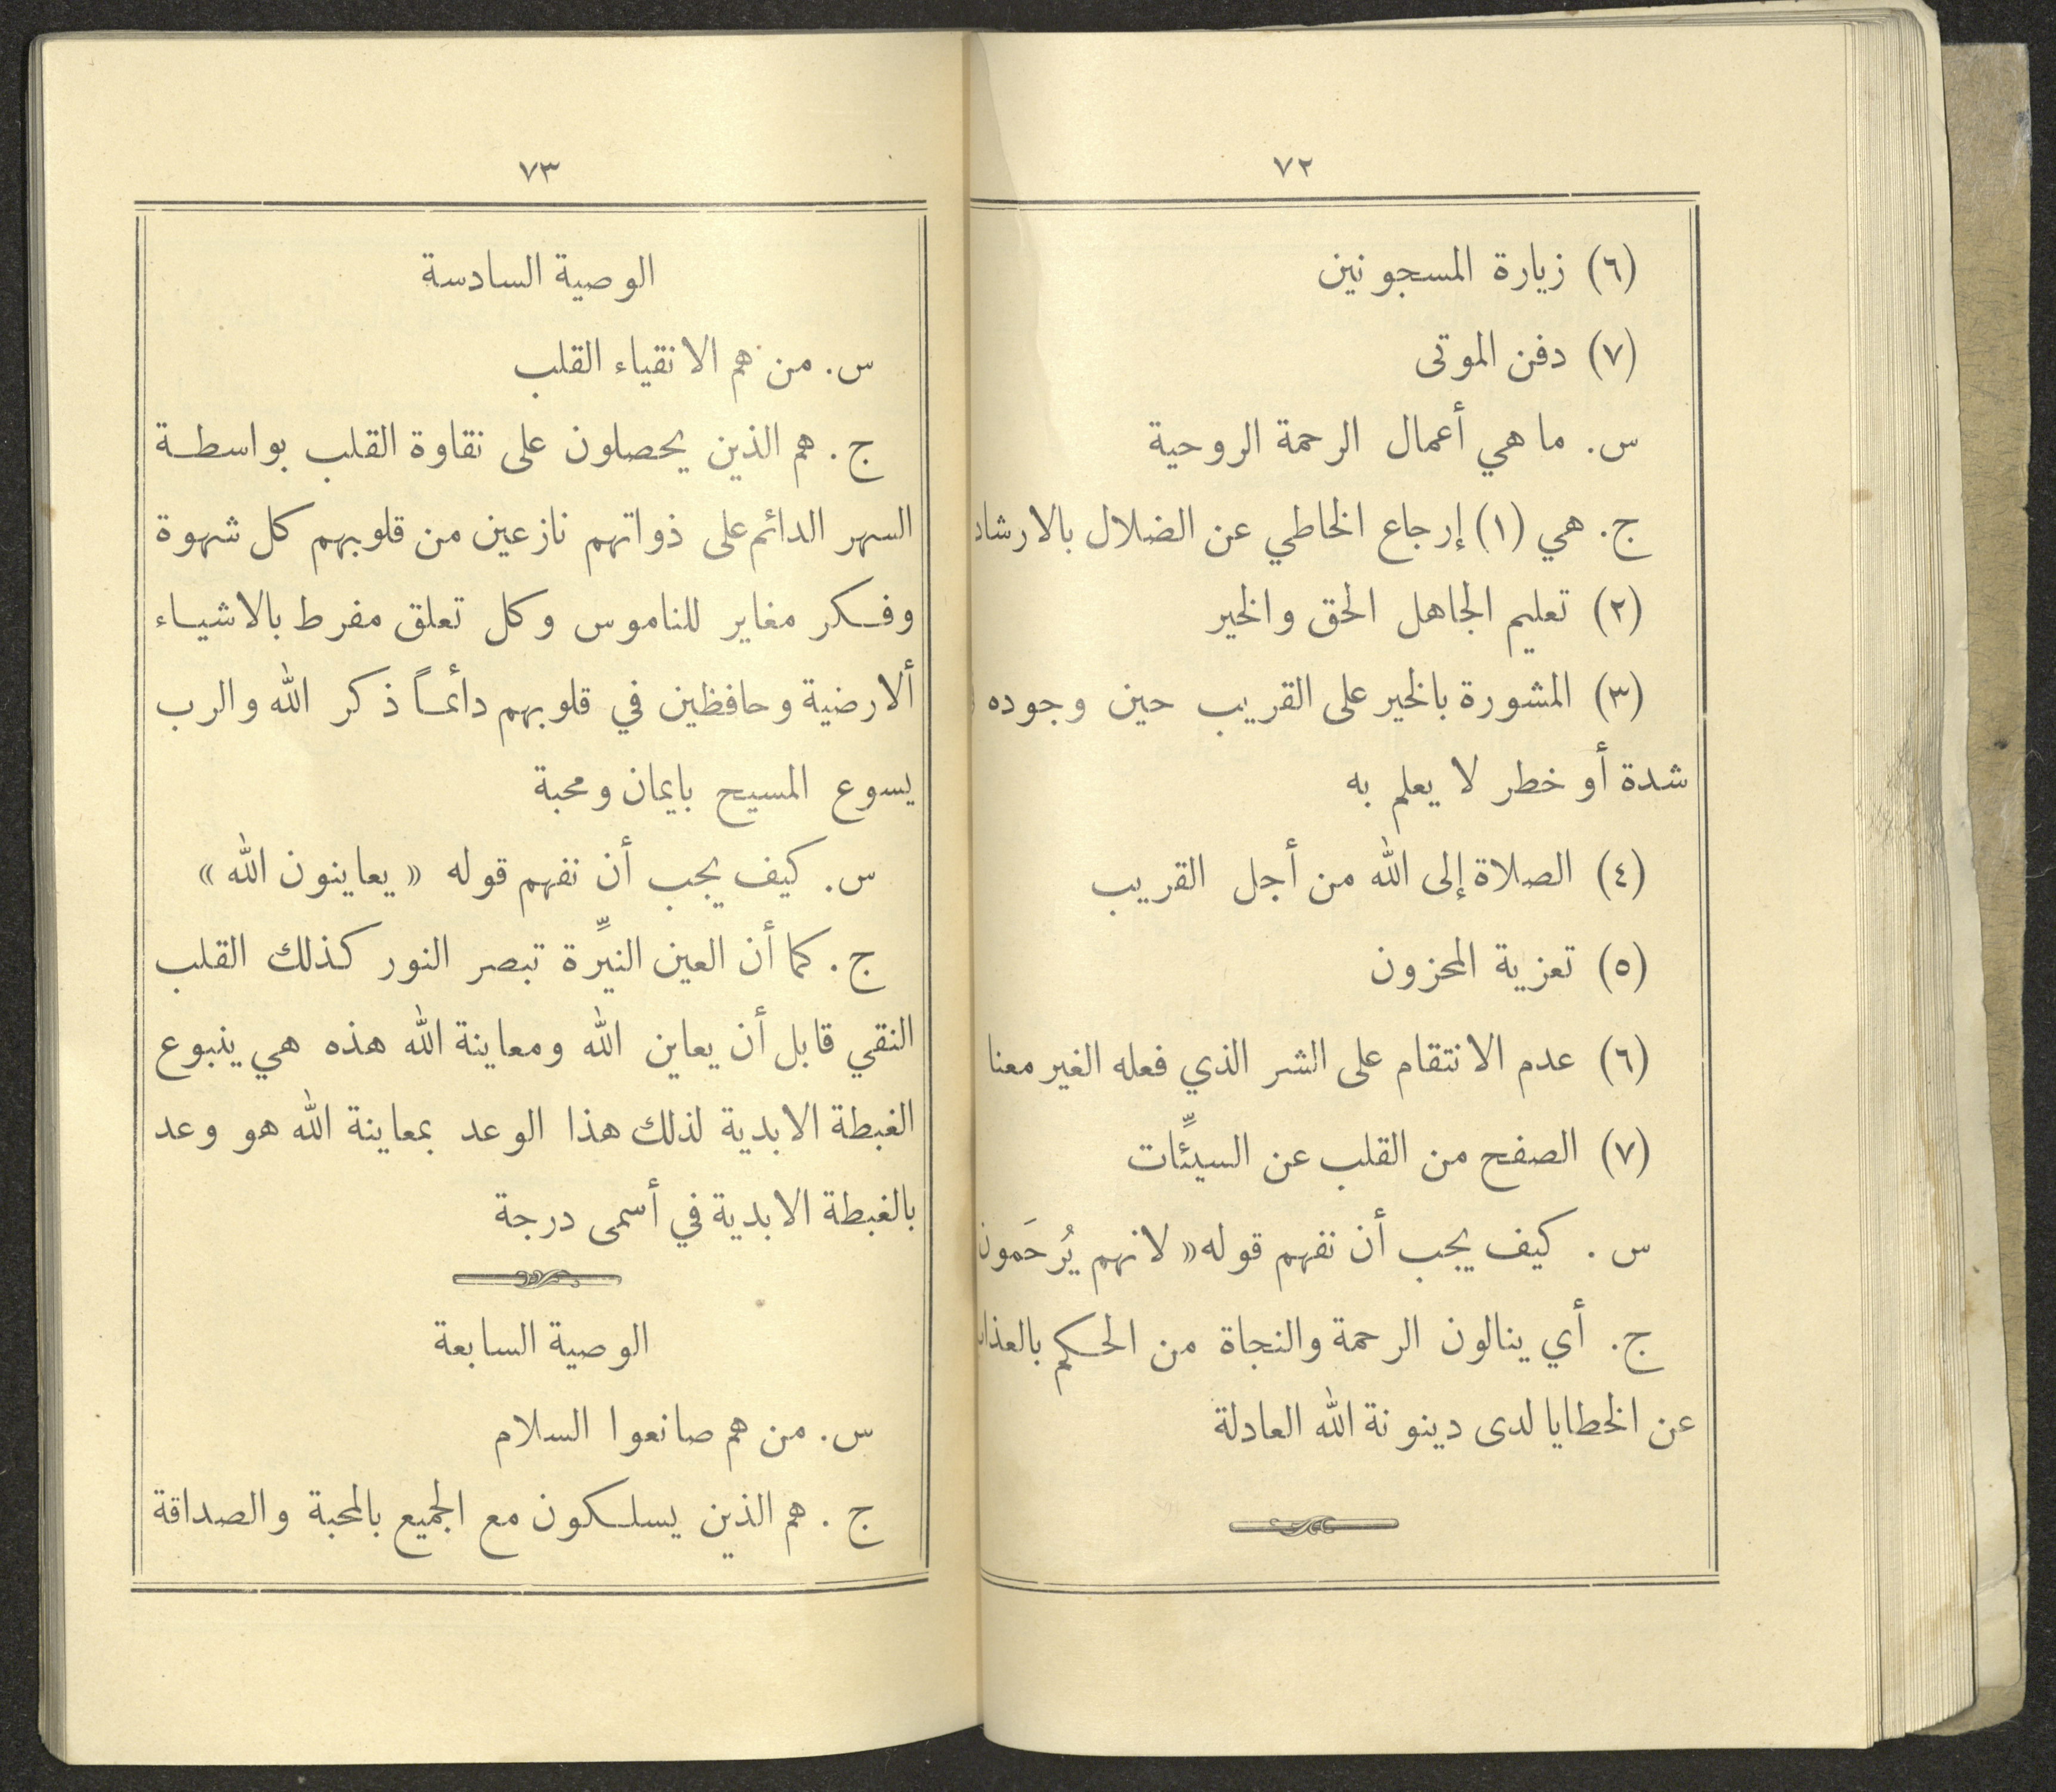 ٧٢
(٦) زيارة المسجونين
(٧) دفن الموتى
س. ما هي أعمال الرحمة الروحية
ج. هي (١) إرجاع الخاطي عن الضلال بالارشاد
(٢) تعليم الجاهل الحق والخير
(٣) المشورة بالخير على القريب حين وجوده
شدة أو خطر لا يعلم به
(٤) الصلاة إلى الله من أجل القريب
(٥) تعزية المحزون
(٦) عدم الانتقام على الشر الذي فعله الغير معنا
(٧) الصفح من القلب عن السيِّئات
س. كيف يجب أن نفهم قوله « لانهم يُرحَمون
ج. أي ينالون الرحمة والنجاة من الحكم بالعذاب
عن الخطايا لدى دينونة الله العادلة
٧٣
الوصية السادسة
س. من هم الانقياء القلب
ج. هم الذين يحصلون على نقاوة القلب بواسطة
السهر الدائم على ذواتهم نازعين من قلوبهم كل شهوة
وفكر مغاير للناموس وكل تعلق مفرط بالاشياء
ألارضية وحافظين في قلوبهم دائماً ذكر الله والرب
يسوع المسيح بايمان ومحبة
س. كيف يجب أن نفهم قوله « يعاينون الله »
ج. كما أن العين النيِّرة تبصر النور كذلك القلب
النقي قابل أن يعاين الله ومعاينة الله هذه هي ينبوع
الغبطة الابدية لذلك هذا الوعد بمعاينة الله هو وعد
بالغبطة الابدية في أسمى درجة
الوصية السابعة
س. من هم صانعوا السلام
ج. هم الذين يسلكون مع الجميع بالمحبة والصداقة